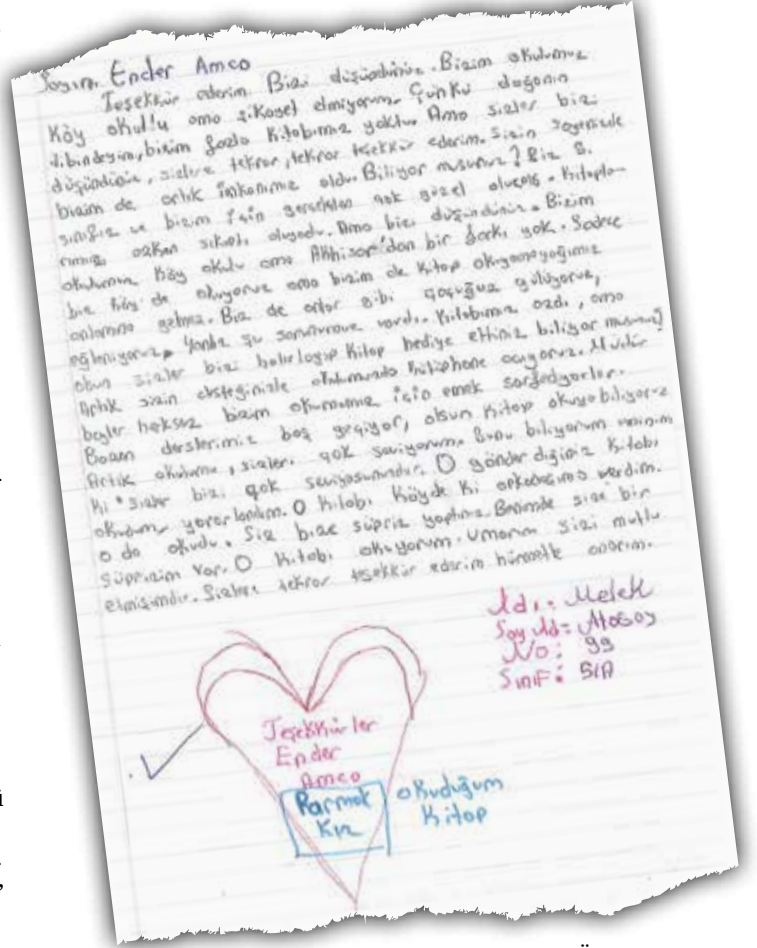 Sayın, Ender Amco
Teşekkür ederim Bizi düşündünüz. Bizim okulumuz
Köy okullu amo şikayet etmiyorum. Çünkü doğanın
dibindeyim, bizim fazla kitabımız yoktu. Amo sizler bizi
düşündünüz, sizlere tekror, tekror teşekkür ederim. Sizin sayenizde
bizim de artık imkanımız oldu. Biliyor musunuz? Biz 5.
sınıfız ve bizim için gerçekten çok güzel oluyor. Kitapla-
rımız azken sıkıntı oluyodu. Amo bizi düşündünüz. Bizim
okulumuz köy okulu amo Akhisar'dan bir farkı yok. Sadece
biz köy de okuyoruz amo bizim de kitap okuyamayağımız
anlamına gelmez. Biz de onlar gibi çoçuğuz gülüyoruz,
eğleniyoruz. Yanlız şu vardı. Kitabımız azdı, amo
olsun sizler bizi hatırlayıp kitap hediye ettiniz biliyor musunuz?
Artık sizin desteğinizle okulumuzda kütüphone açıyoruz. Müdür
beyler herkes bizim okumamız için emek sarfediyorlar.
Bazen derslerimiz boş geçiyor, olsun kitap okuyabiliyoruz
Artık okulumu, sizleri çok seviyorum. Bunu biliyorum
ki sizler bizi çok seviyosunuzdur. O gönderdiğiniz kitabı
okudum, yararlandım. O kitabı köyde ki arkadaşıma verdim.
o da okudu. Siz bize süpriz yaptınız. Benimde size bir
süprizim var. O kitabı okuyorum. Umarım sizi mutlu
etmişimdir. Sizlere tekror teşekkür ederim hürmetle anarım.
Adı: Melek
Soy Ad: Atasoy
No: 99
Sınıf: 5/A
Teşekkürler
Ender
Amco
Parmok
Kız
okuduğum
kitap